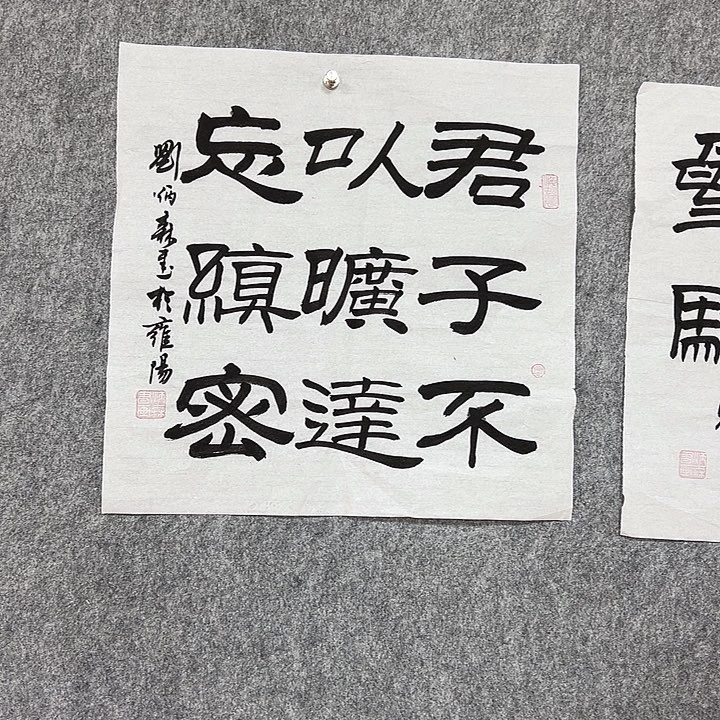 君子不
以曠達
忘縝密
劉炳森書於雍陽